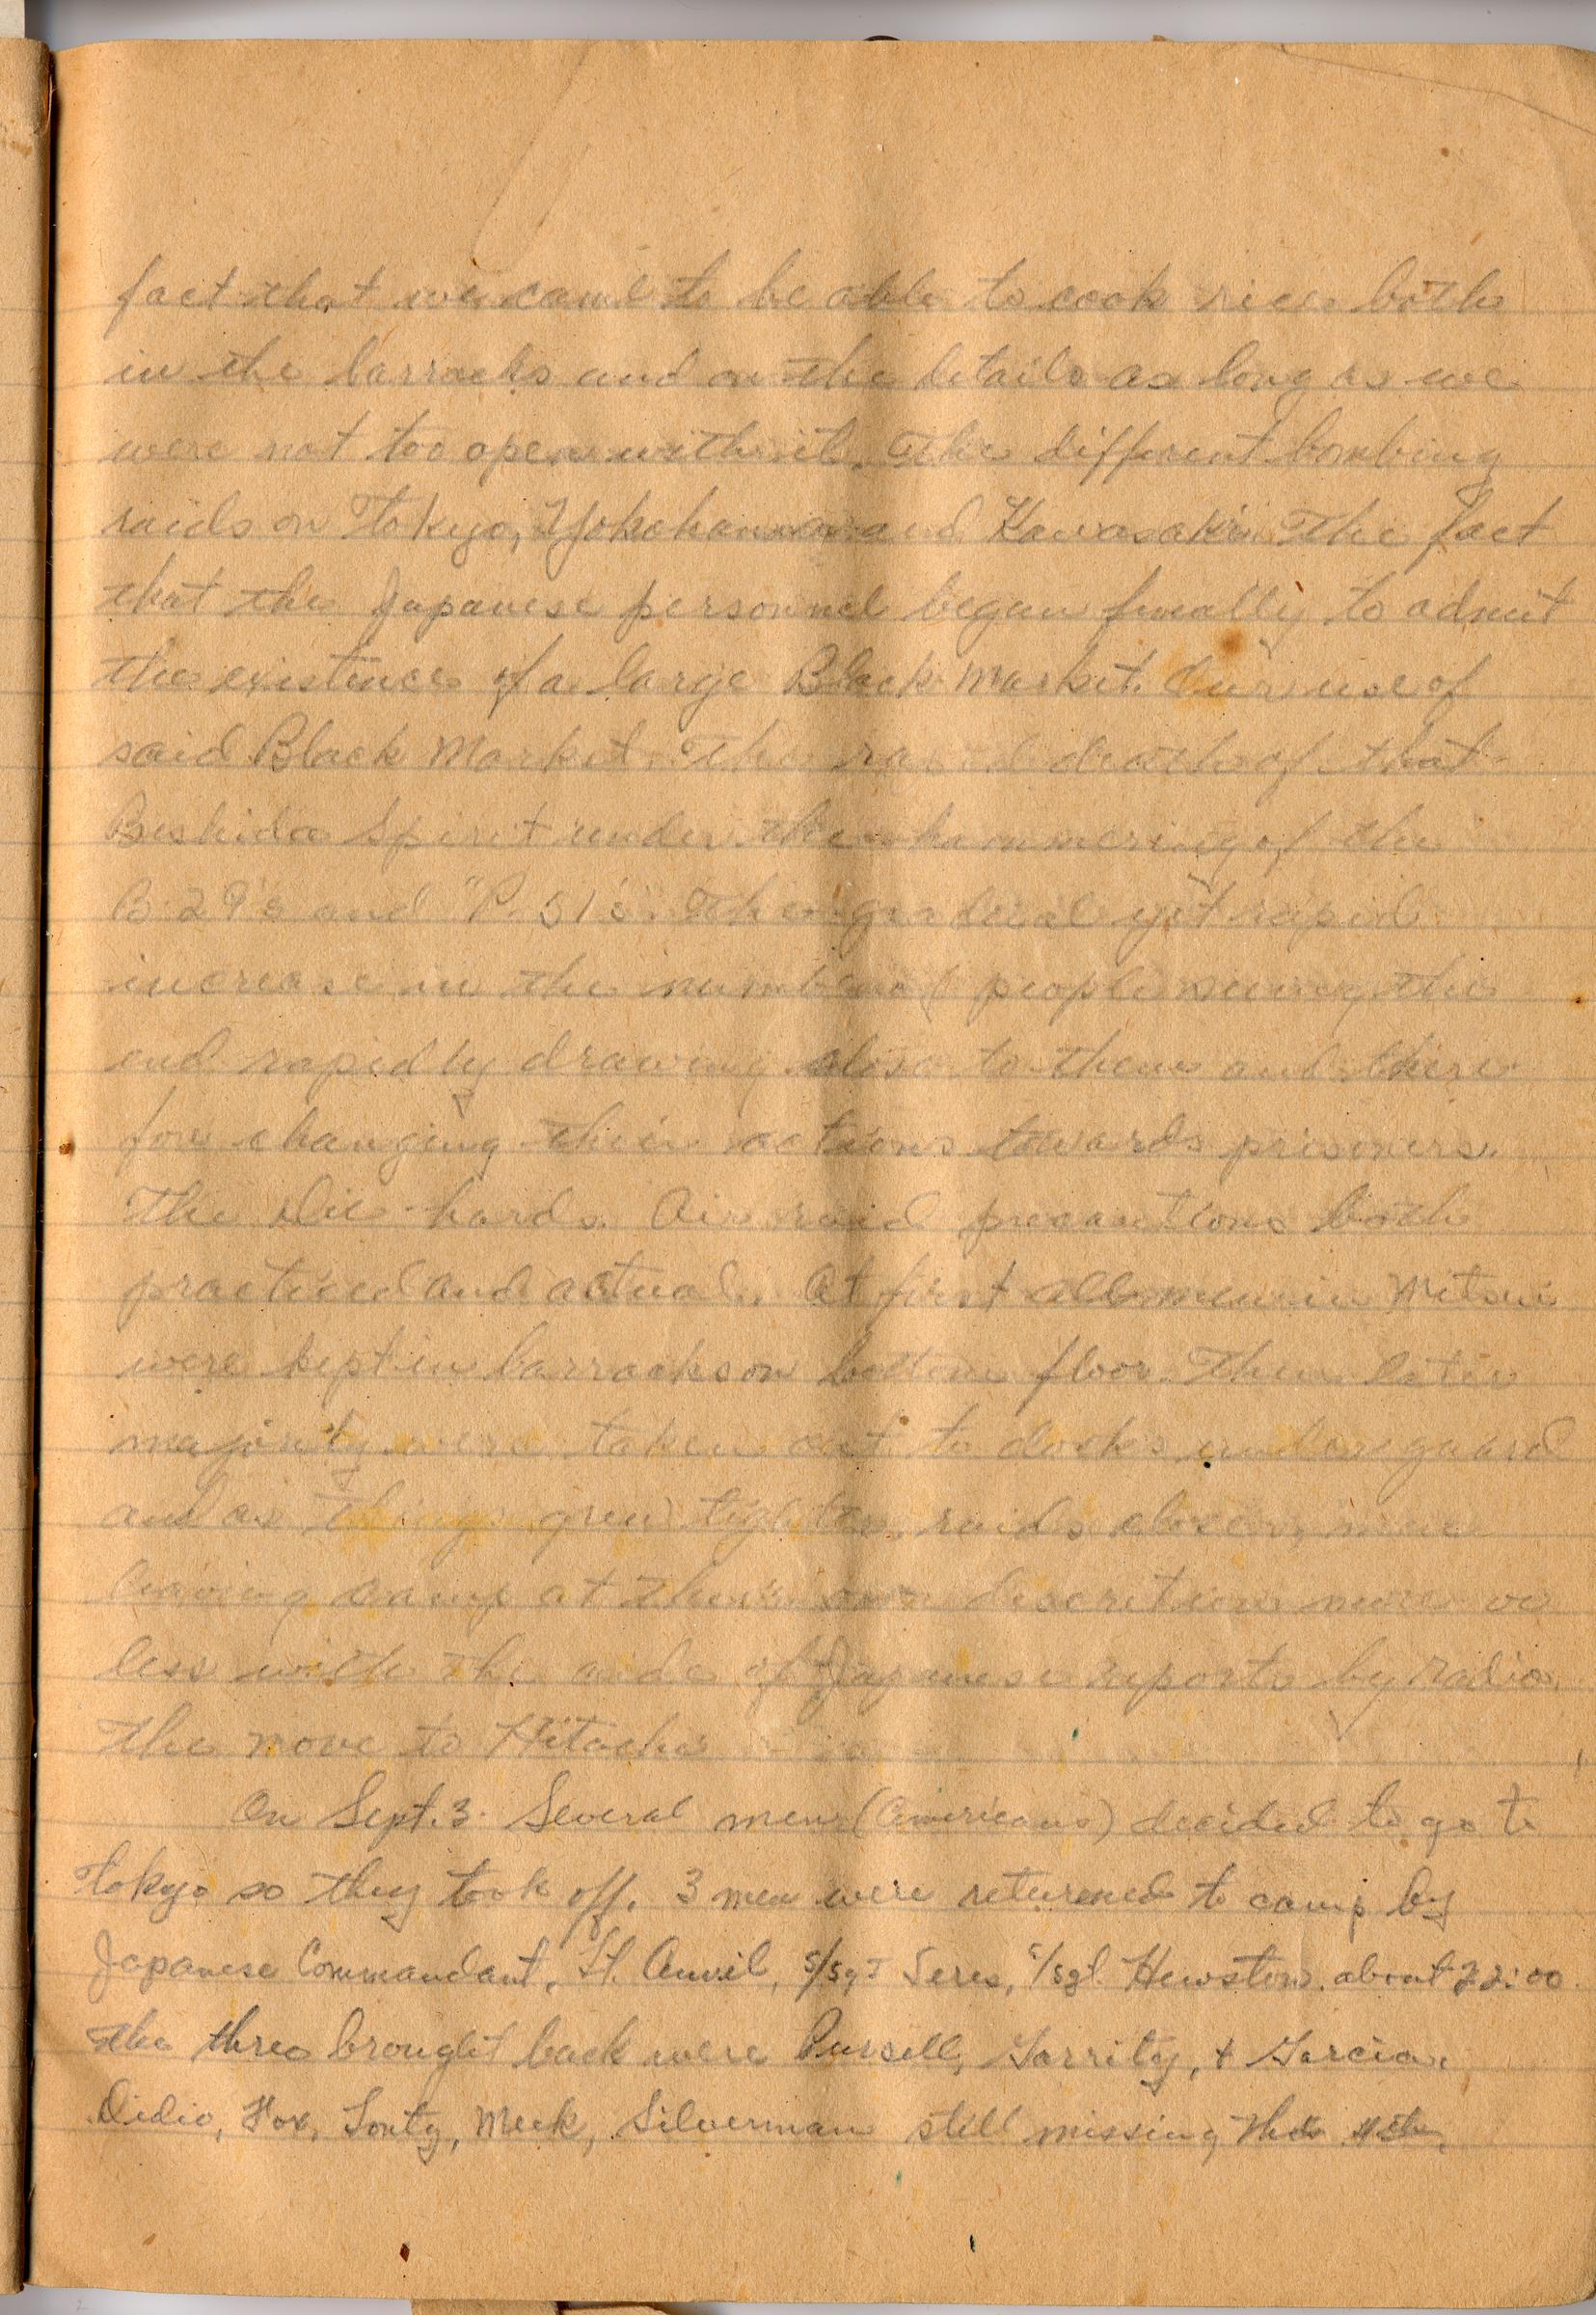 fact that we came to be able to cook rice both
in the barracks and on the details as long as we
were not too open with it. The different bombing
raids on Tokyo, Yokohama and Kawasaki. The fact
that the Japanese personnel began finally to admit
the existence of a large Black Market. Our use of
said Black Market. The rapid death of that
Bushido Spirit under the hammering of the
B-29's and "P-51's. The gradual yet rapid
increase in the number of people seeing the
end rapidly drawing close to them and there
fore changing their actions towards prisoners.
The die-hards. Air raid precautions both
practiced and actual. At first all men in Mitsui
were kept in barracks on bottom floor. Then later
majority were taken out to docks under guard
and as things grew tighter, raids closer, men
leaving camp at their own discretion more or
less with the aide of Japanese reports by radio.
The move to Hitachi
On Sept. 3. Several men (Americans) decided to go to
Tokyo so they took off. 3 men were returned to camp by
Japanese Commandant, Lt. Anvil, S/Sgt Seres, S/Sgt. Hewston. about 22:00.
The three brought back were Pursell, Garrity, + Garcia.
Didio, Fox, Louty, Meek, Silverman still missing the